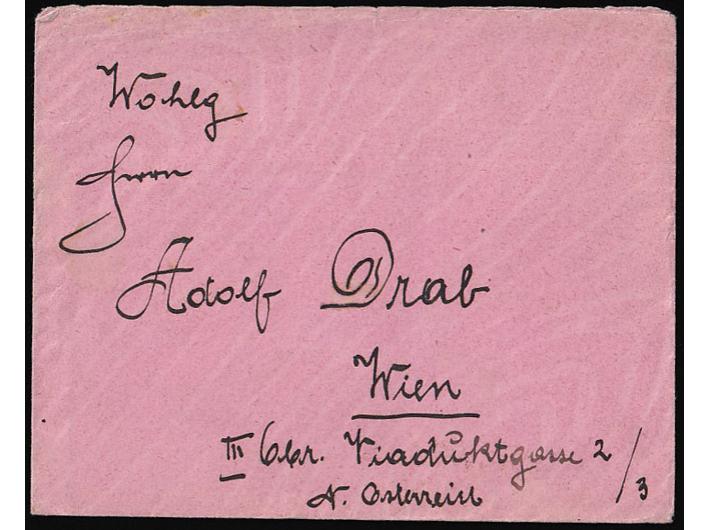 Wohlg
Herrn
Adolf Drab
Wien
III Obr. Viaduktgasse 2/3
N. Österreich